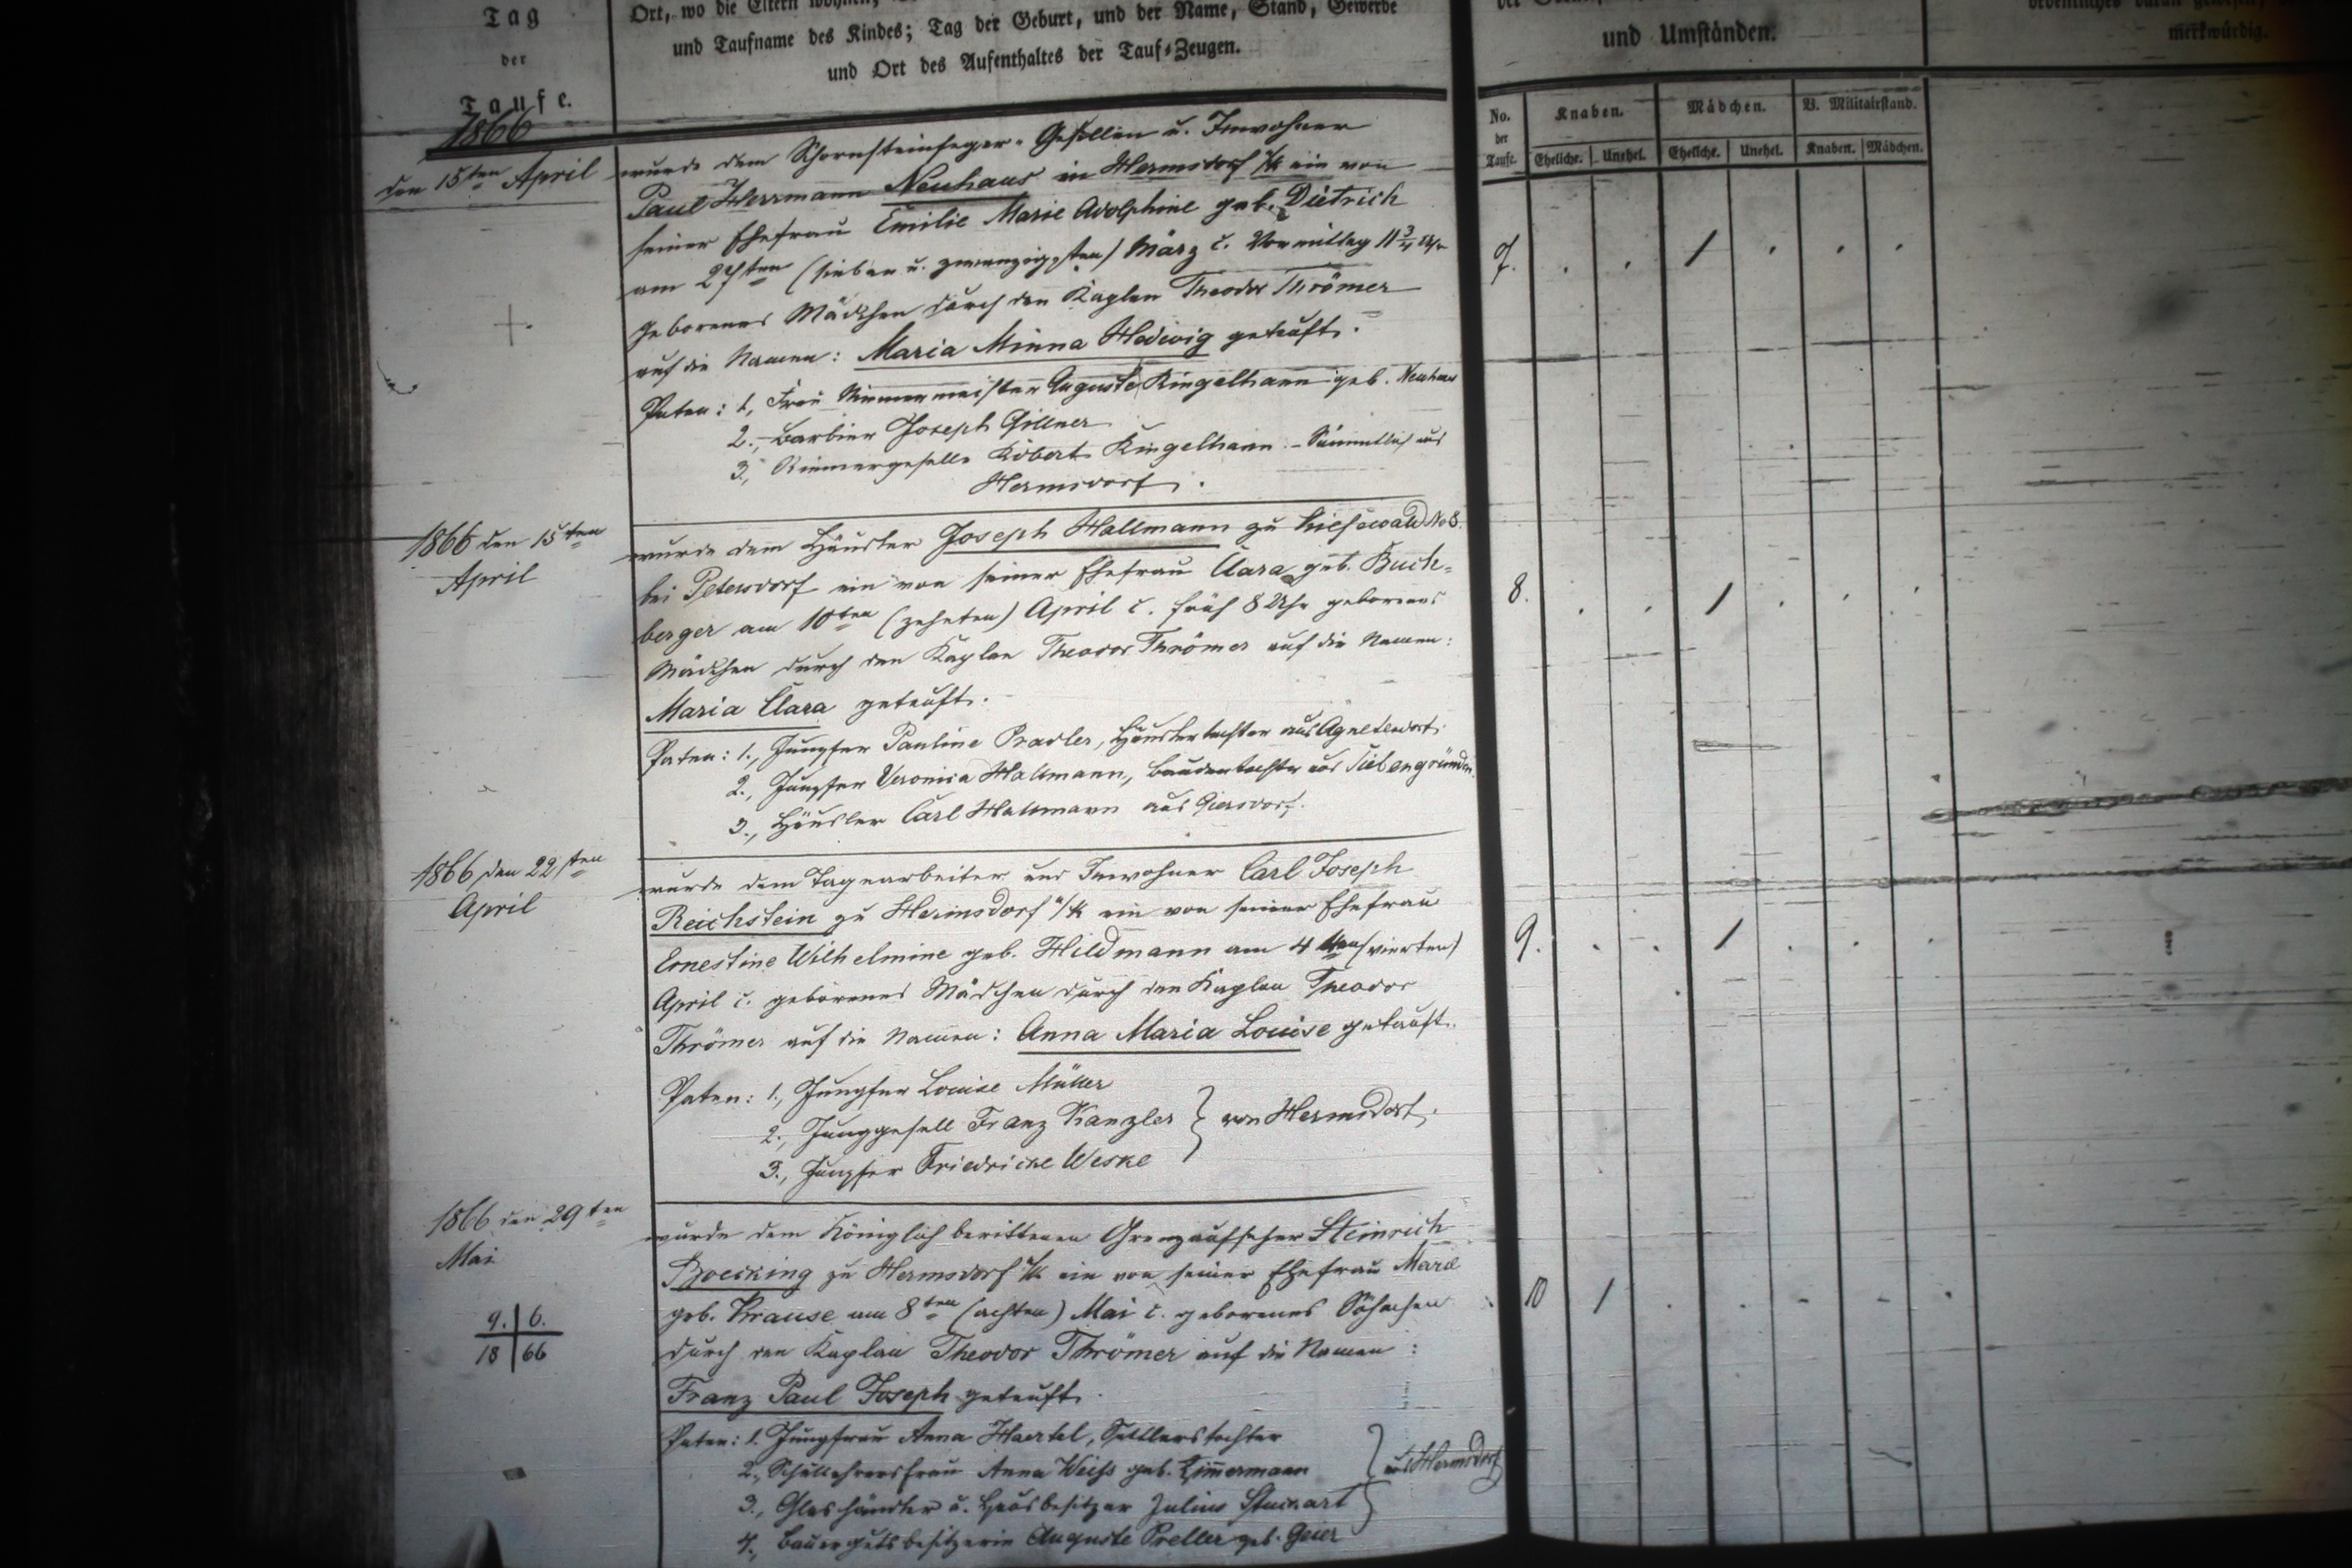 Tag
der
Taufe.
Ort, wo die Eltern wohnen,
und Taufname des Kindes; Tag der Geburt, und der Name, Stand, Gewerbe
und Ort des Aufenthaltes der Tauf-Zeugen.
und Umständen.
merkwürdig.
No.
der
Taufe.
Knaben. Mädchen. V. Militairstand.
Eheliche. Unehel. Eheliche. Unehel. Knaben. Mädchen.
1866
den 15ten April
wurde dem Schornsteinfeger-Gesellen u. Inwohner
Paul Herrmann Neuhaus in Hermsdorf u/K ein von
seiner Ehefrau Emilie Marie Adolphine geb. Dietrich
am 27sten (sieben u. zwanzigsten) März c. Vormittag 11 3/4 Uhr
geborenes Mädchen durch den Kaplan Theodor Thrömer
auf die Namen: Maria Minna Hedwig getauft.
Paten: 1, Frau Riemermeister Auguste Ringelhann geb. Neuhaus
2., Barbier Joseph Gillner
3, Riemergeselle Robert Ringelhann. - Sämmtlich aus
Hermsdorf.
7. . . 1 . . .
1866 den 15ten
April
wurde dem Häusler Joseph Hallmann zu Kiesewald No 8.
bei Petersdorf ein von seiner Ehefrau Clara geb. Buch-
berger am 10ten (zehnten) April c. früh 8 Uhr geborenes
Mädchen durch den Kaplan Theodor Thrömer auf die Namen:
Maria Clara getauft.
Paten: 1., Jungfer Pauline Pradler, Häuslertochter aus Agnetendorf.
2., Jungfer Veronica Hallmann, Baudentochter aus Siebengründen.
3., Häusler Carl Hallmann aus Giersdorf.
8. . . 1 . . .
1866 den 22sten
April
wurde dem Tagearbeiter und Inwohner Carl Joseph
Reichstein zu Hermsdorf u/K ein von seiner Ehefrau
Ernestine Wilhelmine geb. Hildmann am 4ten (vierten)
April c. geborenes Mädchen durch den Kaplan Theodor
Thrömer auf die Namen: Anna Maria Louise getauft.
Paten: 1., Jungfer Louise Müller
2., Junggesell Franz Kanzler } von Hermsdorf.
3., Jungfer Friedricke Weske
9. . . 1 . . .
1866 den 29ten
Mai
9. 6.
18 66
wurde dem Königlich berittenen Grenzaufseher Heinrich
Boecking zu Hermsdorf u/K ein von seiner Ehefrau Marie
geb. Krause am 8ten (achten) Mai c. geborenes Söhnchen
durch den Kaplan Theodor Thrömer auf die Namen:
Franz Paul Joseph getauft.
Paten: 1. Jungfrau Anna Haertel, Sattlerstochter
2., Schullehrersfrau Anna Weiss geb. Zimmermann } aus Hermsdorf
3., Glashändler u. Hausbesitzer Julius
4., Bauergutsbesitzerin Auguste Preller geb. Geier
10 1 . . . . .